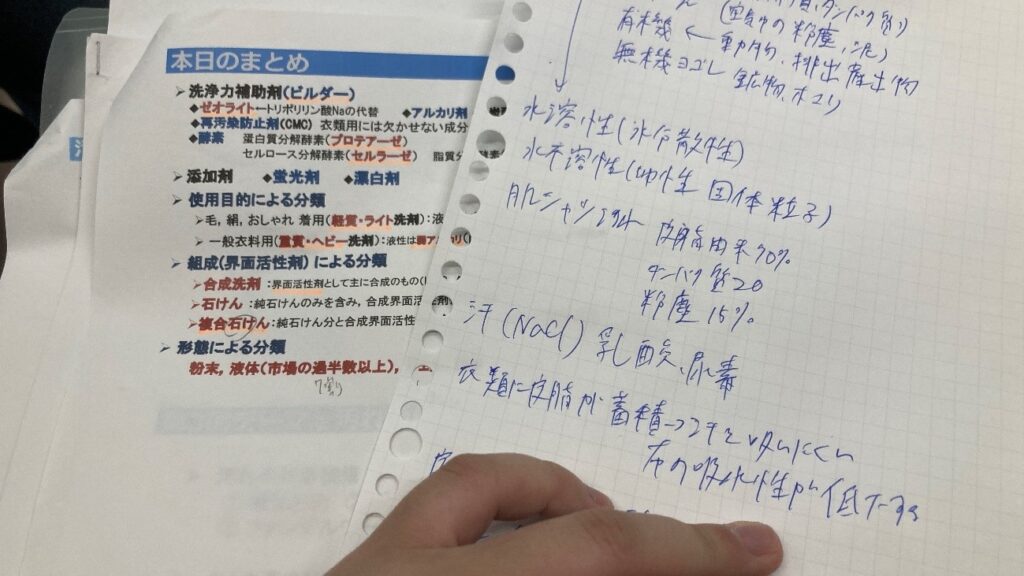 本日のまとめ
➤洗浄力補助剤(ビルダー)
◆ゼオライトートリポリリン酸Naの代替 ◆アルカリ剤
◆再汚染防止剤(CMC) 衣類用には欠かせない成分
◆酵素 蛋白質分解酵素(プロテアーゼ)
セルロース分解酵素(セルラーゼ) 脂質
➤添加剤 ◆蛍光剤 ◆漂白剤
➤使用目的による分類
➤毛, 絹, おしゃれ 着用(軽質・ライト洗剤):液
➤一般衣料用(重質・ヘビー洗剤):液性は弱アルカリ
➤組成(界面活性剤)による分類
➤合成洗剤 :界面活性剤として主に合成のもの
➤石けん :純石けんのみを含み, 合成界面活
➤複合石けん:純石けん分と合成界面活性
➤形態による分類
粉末, 液体(市場の過半数以上),
7割
(空気中の粉塵、泥)
有機 ← 動物、排出産出物
無機ヨゴレ 鉱物、ホコリ
水溶性(水分散性)
水不溶性(油性 固体粒子)
肌シャツ
皮脂由来70%
タンパク質20
粉塵15%
汗(NaCl)乳酸、尿素
衣類に皮脂が蓄積
布の吸水性が低下する